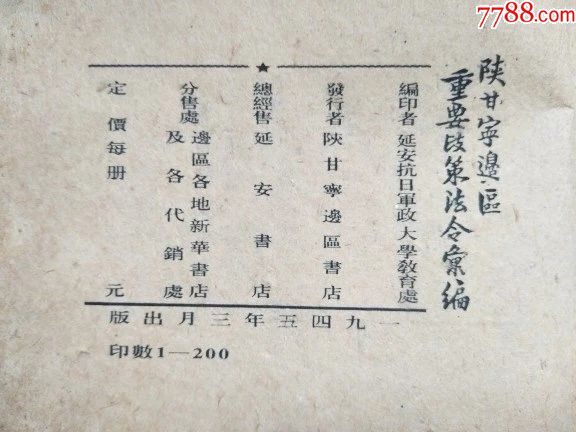 7788.com
陝甘寧邊區
重要政策法令彙編
編印者 延安抗日軍政大學敎育處
發行者 陝甘寧邊區書店
總經售 延安書店
分售處 邊區各地新華書店
及各代銷處
定價每册 元
版出月三年五四九一
印數1—200